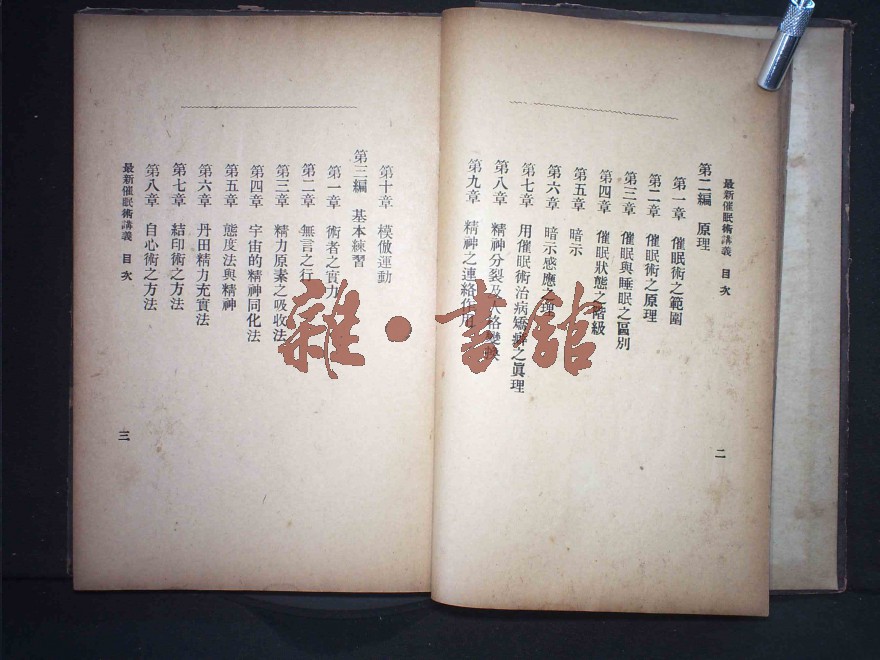 最新催眠術講義 目次 二
第二編 原理
第一章 催眠術之範圍
第二章 催眠術之原理
第三章 催眠與睡眠之區別
第四章 催眠狀態之階級
第五章 暗示
第六章 暗示感應之理
第七章 用催眠術治病矯癖之眞理
第八章 精神分裂及人格變換
第九章 精神之連絡作用
第十章 模倣運動
第三編 基本練習
第一章 術者之實力
第二章 無言之行
第三章 精力原素之吸收法
第四章 宇宙的精神同化法
第五章 態度法與精神
第六章 丹田精力充實法
第七章 結印術之方法
第八章 自心術之方法
最新催眠術講義 目次 三
雜·書館